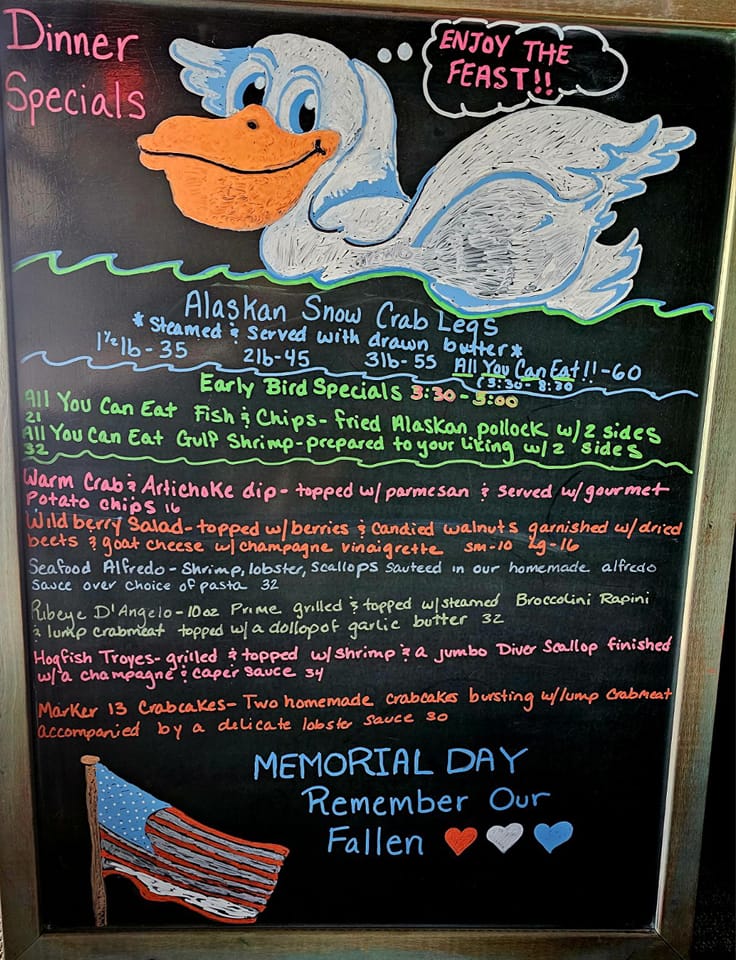 Dinner
Specials
ENJOY THE
FEAST!!
Alaskan Snow Crab Legs
*Steamed & Served with drawn butter*
1½lb-35 2lb-45 3lb-55 All You Can Eat!!-60
Early Bird Specials 3:30-5:00
All You Can Eat Fish & Chips- fried Alaskan pollock w/2 sides
21
All You Can Eat Gulf Shrimp-prepared to your liking w/2 sides
32
Warm Crab & Artichoke dip- topped w/parmesan & served w/gourmet
potato chips 16
Wild berry Salad-topped w/berries & candied walnuts garnished w/dried
beets & goat cheese w/champagne vinaigrette sm-10 lg-16
Seafood Alfredo- Shrimp, lobster, scallops sauteed in our homemade alfredo
sauce over choice of pasta 32
Ribeye D'Angelo-10oz Prime grilled & topped w/steamed Broccolini Rapini
& lump crabmeat topped w/a dollop of garlic butter 32
Hogfish Troyes-grilled & topped w/shrimp & a jumbo Diver Scallop finished
w/a champagne & caper sauce 34
Marker 13 Crabcakes-Two homemade crabcakes bursting w/lump crabmeat
accompanied by a delicate lobster sauce 30
MEMORIAL DAY
Remember Our
Fallen